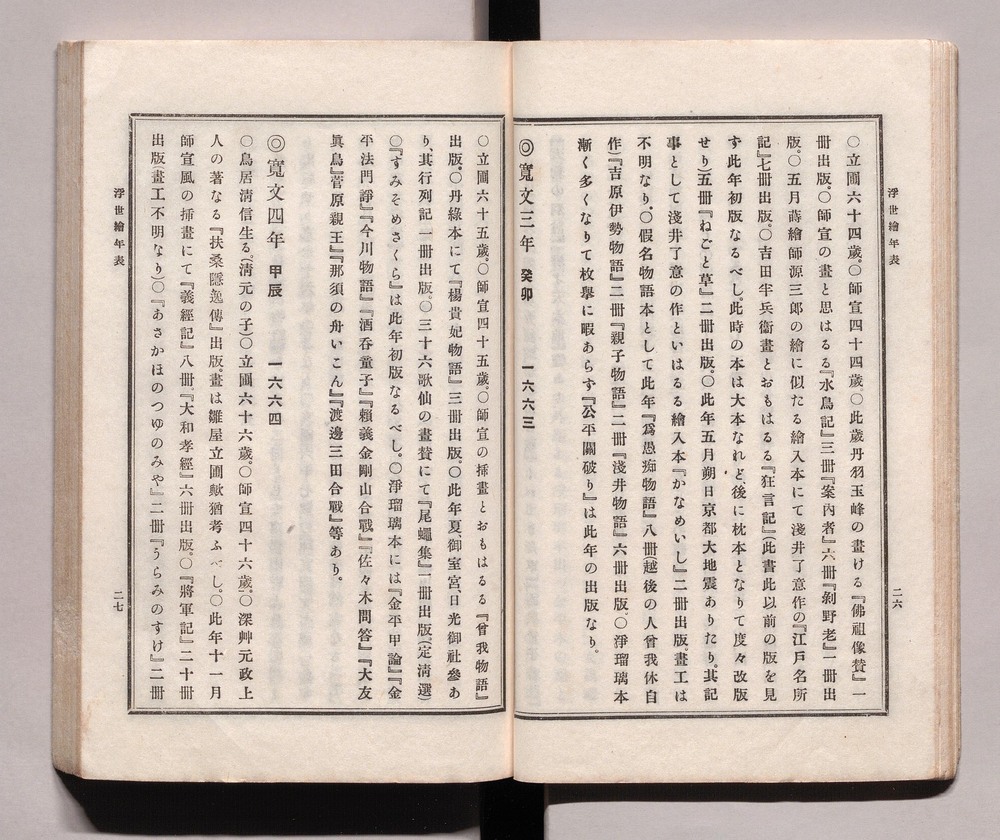 浮世繪年表
二六
○立圃六十四歲。○師宣四十四歲。○此歲丹羽玉峰の畫ける『佛祖像贊』一
冊出版。○師宣の畫と思はるる『水鳥記』三冊『案內者』六冊『剝野老』一冊出
版。○五月蒔繪師源三郎の繪に似たる繪入本にて淺井了意作の『江戶名所
記』七冊出版。○吉田半兵衞畫とおもはるる『狂言記』(此書此以前の版を見
ず此年初版なるべし。此時の本は大本なれど、後に枕本となりて度々改版
せり)五冊『ねごと草』二冊出版。○此年五月朔日京都大地震ありたり。其記
事として淺井了意の作といはるる繪入本『かなめいし』二冊出版。畫工は
不明なり。○假名物語本として此年『爲愚痴物語』八冊(越後の人曾我休自
作)『吉原伊勢物語』二冊『親子物語』二冊『淺井物語』六冊出版。○淨瑠璃本
漸く多くなりて枚擧に暇あらず『公平關破り』は此年の出版なり。
◎寬文三年 癸卯 一六六三
○立圃六十五歲。○師宣四十五歲。○師宣の揷畫とおもはるる『曾我物語』
出版。○丹綠本にて『楊貴妃物語』三冊出版。○此年夏、御室宮、日光御社參あ
り、其行列記一冊出版。○三十六歌仙の畫贊にて『尾蠅集』一冊出版(定淸選)
○『すみそめさくら』は此年初版なるべし。○淨瑠璃本には『金平甲論』『金
平法門諍』『今川物語』『酒呑童子』『賴義金剛山合戰』『佐々木問答』『大友
眞鳥』『菅原親王』『那須の舟いこん』『渡邊三田合戰』等あり。
◎寬文四年 甲辰 一六六四
○鳥居淸信生る(淸元の子)○立圃六十六歲。○師宣四十六歲。○深艸元政上
人の著なる『扶桑隱逸傳』出版。畫は雛屋立圃歟猶考ふべし。○此年十一月
師宣風の揷畫にて『義經記』八冊、『大和孝經』六冊出版。○『將軍記』二十冊
出版畫工不明なり)○『あさかほのつゆのみや』二冊『うらみのすけ』二冊
浮世繪年表
二七